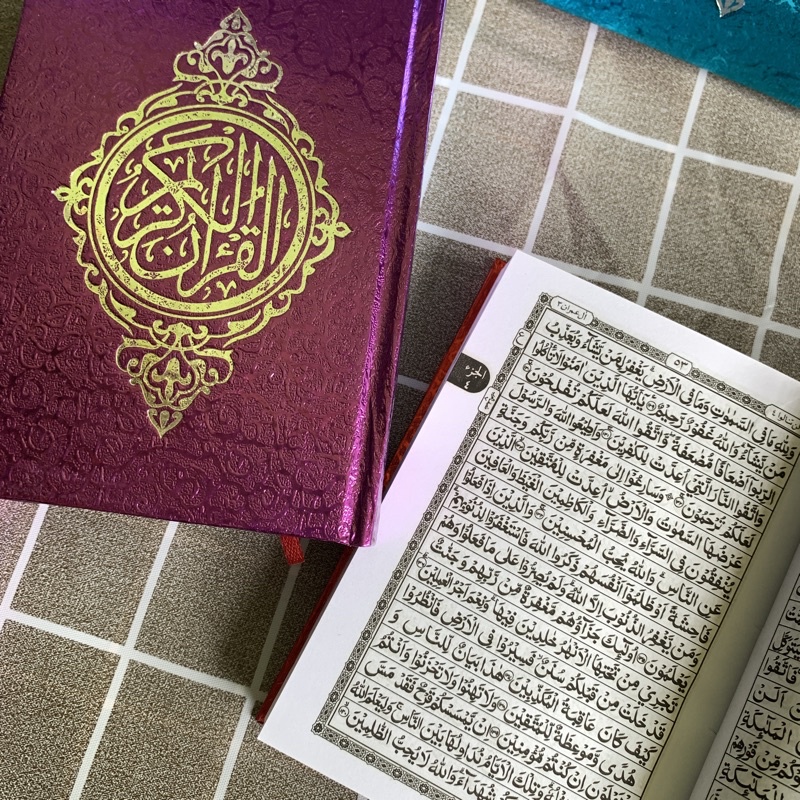 القرآن الكريم
آل عمران ٣
٥٣
الجزء
٤
وَلِلّٰهِ مَا فِى السَّمٰوٰتِ وَمَا فِى الْاَرْضِ يَغْفِرُ لِمَنْ يَّشَآءُ وَيُعَذِّبُ
مَنْ يَّشَآءُ وَاللّٰهُ غَفُوْرٌ رَّحِيْمٌ يٰٓاَيُّهَا الَّذِيْنَ اٰمَنُوْا لَا تَاْكُلُوا
الرِّبٰٓوا اَضْعَافًا مُّضٰعَفَةً وَّاتَّقُوا اللّٰهَ لَعَلَّكُمْ تُفْلِحُوْنَ
وَاتَّقُوا النَّارَ الَّتِىْٓ اُعِدَّتْ لِلْكٰفِرِيْنَ وَاَطِيْعُوا اللّٰهَ وَالرَّسُوْلَ
لَعَلَّكُمْ تُرْحَمُوْنَ وَسَارِعُوْٓا اِلٰى مَغْفِرَةٍ مِّنْ رَّبِّكُمْ وَجَنَّةٍ
عَرْضُهَا السَّمٰوٰتُ وَالْاَرْضُ اُعِدَّتْ لِلْمُتَّقِيْنَ الَّذِيْنَ
يُنْفِقُوْنَ فِى السَّرَّآءِ وَالضَّرَّآءِ وَالْكٰظِمِيْنَ الْغَيْظَ وَالْعَافِيْنَ
عَنِ النَّاسِ وَاللّٰهُ يُحِبُّ الْمُحْسِنِيْنَ وَالَّذِيْنَ اِذَا فَعَلُوْا
فَاحِشَةً اَوْ ظَلَمُوْٓا اَنْفُسَهُمْ ذَكَرُوا اللّٰهَ فَاسْتَغْفَرُوْا لِذُنُوْبِهِمْ
وَمَنْ يَّغْفِرُ الذُّنُوْبَ اِلَّا اللّٰهُ وَلَمْ يُصِرُّوْا عَلٰى مَا فَعَلُوْا وَهُمْ
يَعْلَمُوْنَ اُولٰٓئِكَ جَزَآؤُهُمْ مَّغْفِرَةٌ مِّنْ رَّبِّهِمْ وَجَنّٰتٌ
تَجْرِىْ مِنْ تَحْتِهَا الْاَنْهٰرُ خٰلِدِيْنَ فِيْهَا وَنِعْمَ اَجْرُ الْعٰمِلِيْنَ
قَدْ خَلَتْ مِنْ قَبْلِكُمْ سُنَنٌ فَسِيْرُوْا فِى الْاَرْضِ فَانْظُرُوْا
كَيْفَ كَانَ عَاقِبَةُ الْمُكَذِّبِيْنَ هٰذَا بَيَانٌ لِّلنَّاسِ وَ
هُدًى وَّمَوْعِظَةٌ لِّلْمُتَّقِيْنَ وَلَا تَهِنُوْا وَلَا تَحْزَنُوْا وَاَنْتُمُ
اِنْ كُنْتُمْ مُّؤْمِنِيْنَ اِنْ يَّمْسَسْكُمْ قَرْحٌ فَقَدْ مَسَّ
وَتِلْكَ الْاَيَّامُ نُدَاوِلُهَا بَيْنَ النَّاسِ وَلِيَعْلَمَ اللّٰهُ
شُهَدَآءَ وَاللّٰهُ لَا يُحِبُّ الظّٰلِمِيْنَ